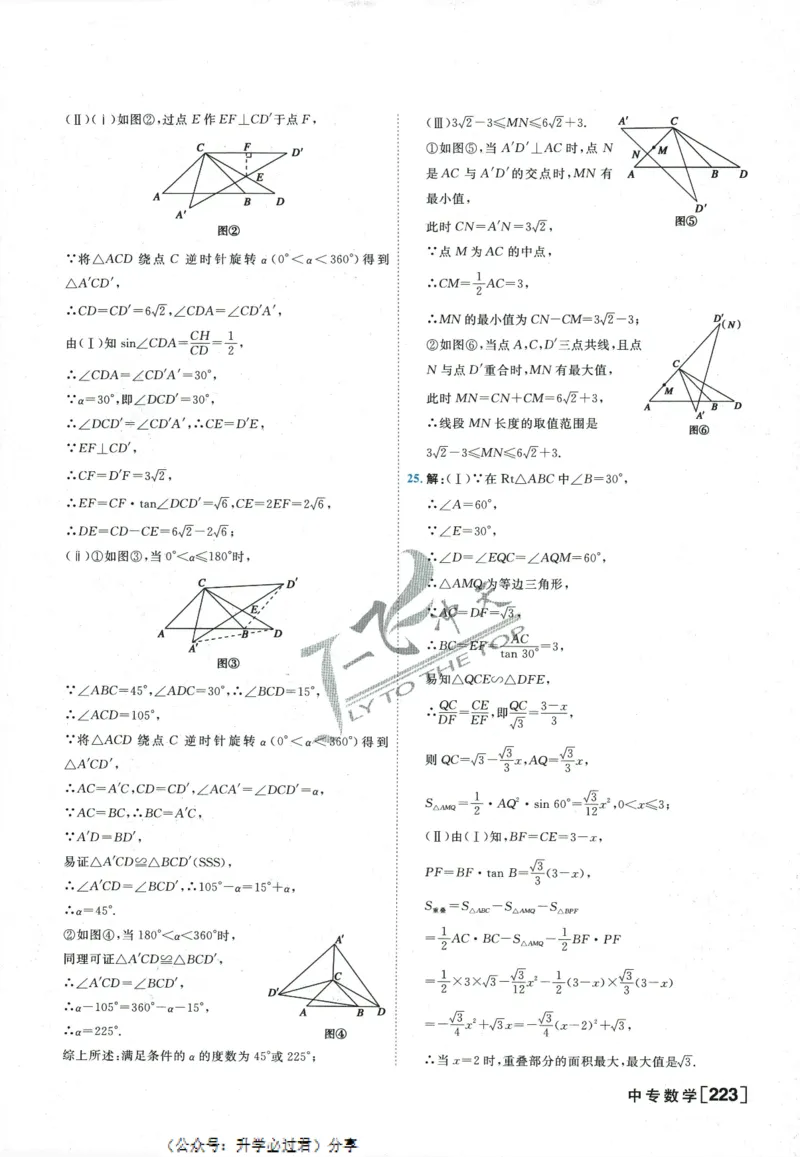 (Ⅱ)(ⅰ)如图②,过点 E 作 EF⊥CD′于点 F,
C F D′
E
A B D
A′
图②
∵将△ACD 绕点 C 逆时针旋转 α(0°<α<360°)得到
△A′CD′,
∴CD=CD′=6√2,∠CDA=∠CD′A′,
由(Ⅰ)知 sin∠CDA=CH/CD=1/2,
∴∠CDA=∠CD′A′=30°,
∵α=30°,即∠DCD′=30°,
∴∠DCD′=∠CD′A′,∴CE=D′E,
∵EF⊥CD′,
∴CF=D′F=3√2,
∴EF=CF·tan∠DCD′=√6,CE=2EF=2√6,
∴DE=CD−CE=6√2−2√6;
(ⅱ)①如图③,当 0°<α≤180°时,
C D′
E
A B D
A′
图③
∵∠ABC=45°,∠ADC=30°,∴∠BCD=15°,
∴∠ACD=105°,
∵将△ACD 绕点 C 逆时针旋转 α(0°<α<360°)得到
△A′CD′,
∴AC=A′C,CD=CD′,∠ACA′=∠DCD′=α,
∵AC=BC,∴BC=A′C,
∵A′D=BD′,
易证△A′CD≌△BCD′(SSS),
∴∠A′CD=∠BCD′,∴105°−α=15°+α,
∴α=45°.
②如图④,当 180°<α<360°时,
同理可证△A′CD≌△BCD′,
∴∠A′CD=∠BCD′,
∴α−105°=360°−α−15°,
∴α=225°.
A′
C
D′
A B D
图④
综上所述:满足条件的 α 的度数为 45°或 225°;
(Ⅲ)3√2−3≤MN≤6√2+3.
①如图⑤,当 A′D′⊥AC 时,点 N
是 AC 与 A′D′的交点时,MN 有
最小值,
此时 CN=A′N=3√2,
∵点 M 为 AC 的中点,
∴CM=1/2AC=3,
∴MN 的最小值为 CN−CM=3√2−3;
A′ C
N M
A B D
D′
图⑤
②如图⑥,当点 A,C,D′三点共线,且点
N 与点 D′重合时,MN 有最大值,
此时 MN=CN+CM=6√2+3,
∴线段 MN 长度的取值范围是
3√2−3≤MN≤6√2+3.
D′(N)
C
M
A B D
A′
图⑥
25. 解:(Ⅰ)∵在 Rt△ABC 中∠B=30°,
∴∠A=60°,
∵∠E=30°,
∴∠D=∠EQC=∠AQM=60°,
∴△AMQ 为等边三角形,
∵AC=DF=√3,
∴BC=EF=AC/tan 30°=3,
易知△QCE∽△DFE,
∴QC/DF=CE/EF,即QC/√3=(3−x)/3,
则 QC=√3−√3/3x,AQ=√3/3x,
S△AMQ=1/2·AQ²·sin 60°=√3/12x²,0<x≤3;
(Ⅱ)由(Ⅰ)知,BF=CE=3−x,
PF=BF·tan B=√3/3(3−x),
S重叠=S△ABC−S△AMQ−S△BPF
=1/2AC·BC−S△AMQ−1/2BF·PF
=1/2×3×√3−√3/12x²−1/2(3−x)×√3/3(3−x)
=−√3/4x²+√3x=−√3/4(x−2)²+√3,
∴当 x=2 时,重叠部分的面积最大,最大值是√3.
一飞冲天
FLY TO THE TOP
中专数学[223]
(公众号: 升学必过君) 分享